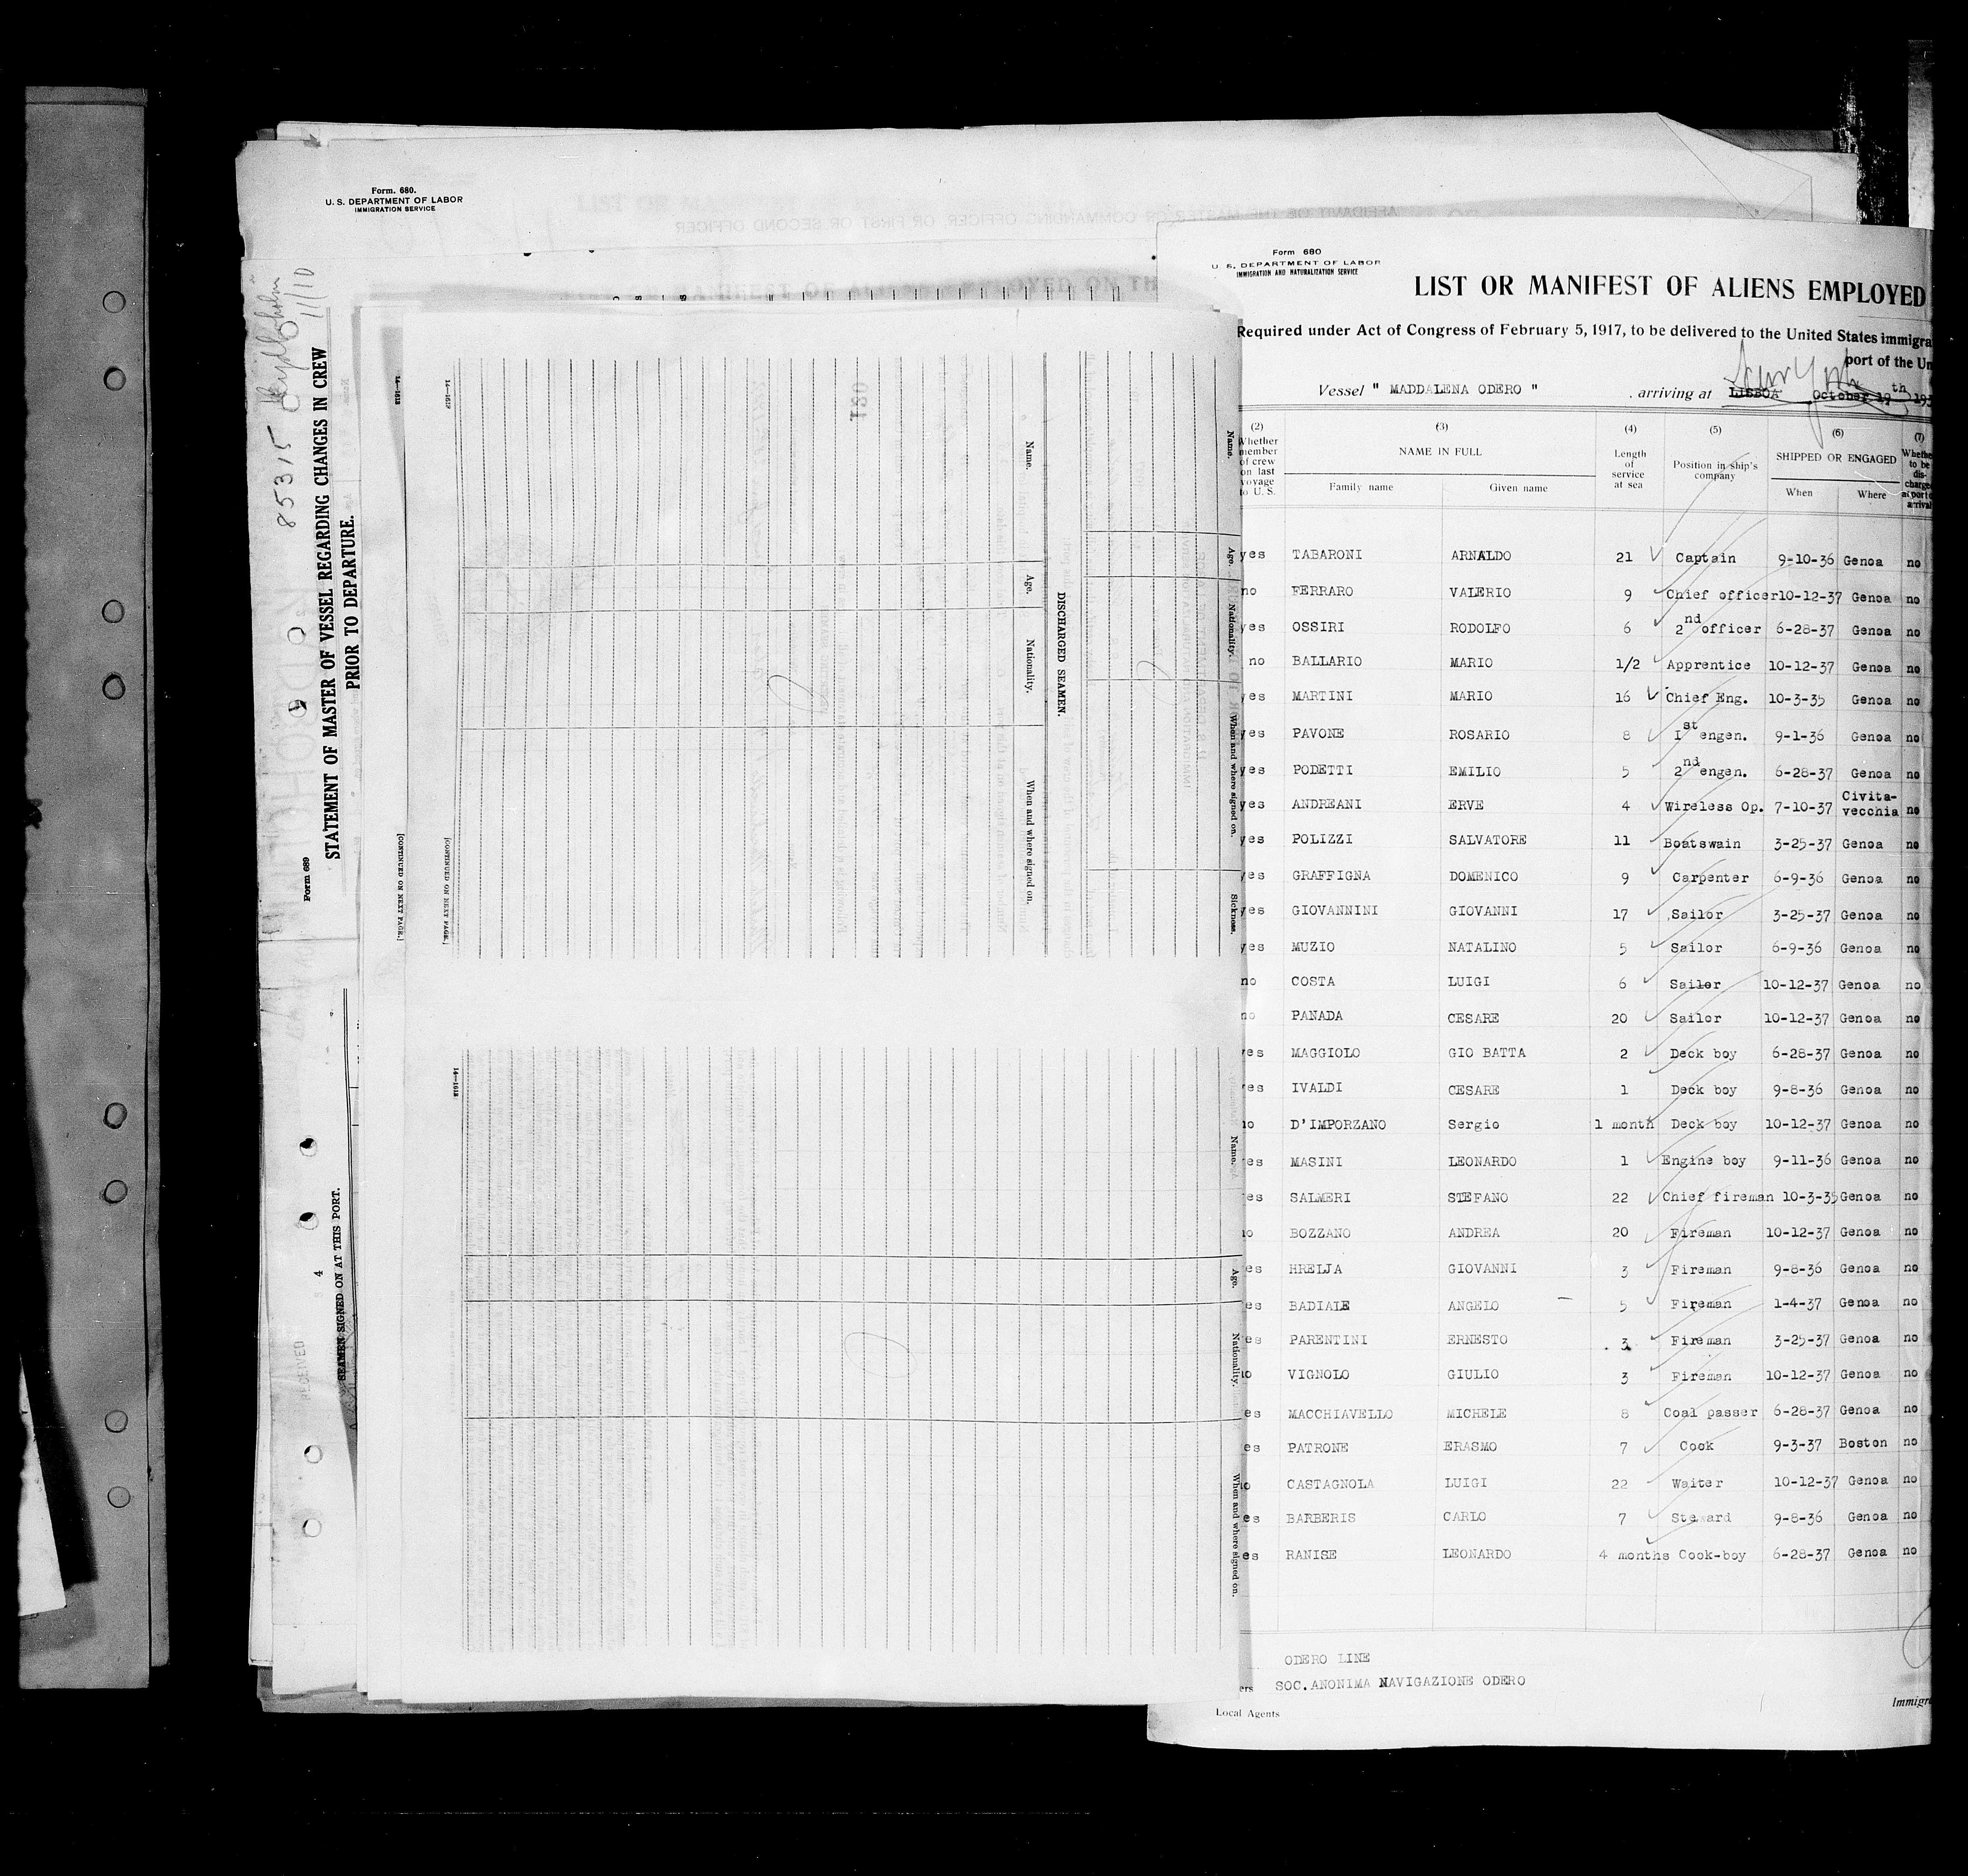 Form. 680.
U. S. DEPARTMENT OF LABOR
IMMIGRATION SERVICE
85315
11/10
Form 689
STATEMENT OF MASTER OF VESSEL REGARDING CHANGES IN CREW
PRIOR TO DEPARTURE.
4
RECEIVED
SEAMEN SIGNED ON AT THIS PORT.
14—1613
[CONTINUED ON NEXT PAGE.]
14—1617
[CONTINUED ON NEXT PAGE.]
130
Name. Age. Nationality. When and where signed on.
DISCHARGED SEAMEN.
Name. Age. Nationality. When and where signed on. Sickness.
14—1613
Name. Age. Nationality. When and where signed on.
Form 680
U. S. DEPARTMENT OF LABOR
IMMIGRATION AND NATURALIZATION SERVICE
LIST OR MANIFEST OF ALIENS EMPLOYED
Required under Act of Congress of February 5, 1917, to be delivered to the United States immigra
port of the Un
New York
Vessel " MADDALENA ODERO " , arriving at LISBOA October 19th 193
(2) (3) (4) (5) (6) (7)
Whether member of crew on last voyage to U. S. NAME IN FULL Length of service at sea Position in ship's company SHIPPED OR ENGAGED Whether to be discharged at port of arrival
Family name Given name When Where
yes TABARONI ARNALDO 21 Captain 9-10-36 Genoa no
no FERRARO VALERIO 9 Chief officer 10-12-37 Genoa no
yes OSSIRI RODOLFO 6 2nd officer 6-28-37 Genoa no
no BALLARIO MARIO 1/2 Apprentice 10-12-37 Genoa no
yes MARTINI MARIO 16 Chief Eng. 10-3-35 Genoa no
yes PAVONE ROSARIO 8 Ist engen. 9-1-36 Genoa no
yes PODETTI EMILIO 5 2nd engen. 6-28-37 Genoa no
yes ANDREANI ERVE 4 Wireless Op. 7-10-37 Civita-vecchia no
yes POLIZZI SALVATORE 11 Boatswain 3-25-37 Genoa no
yes GRAFFIGNA DOMENICO 9 Carpenter 6-9-36 Genoa no
yes GIOVANNINI GIOVANNI 17 Sailor 3-25-37 Genoa no
yes MUZIO NATALINO 5 Sailor 6-9-36 Genoa no
no COSTA LUIGI 6 Sailor 10-12-37 Genoa no
no PANADA CESARE 20 Sailor 10-12-37 Genoa no
yes MAGGIOLO GIO BATTA 2 Deck boy 6-28-37 Genoa no
yes IVALDI CESARE 1 Deck boy 9-8-36 Genoa no
no D'IMPORZANO Sergio 1 month Deck boy 10-12-37 Genoa no
es MASINI LEONARDO 1 Engine boy 9-11-36 Genoa no
es SALMERI STEFANO 22 Chief fireman 10-3-35 Genoa no
no BOZZANO ANDREA 20 Fireman 10-12-37 Genoa no
es HRELJA GIOVANNI 3 Fireman 9-8-36 Genoa no
es BADIALE ANGELO 5 Fireman 1-4-37 Genoa no
es PARENTINI ERNESTO 3 Fireman 3-25-37 Genoa no
o VIGNOLO GIULIO 3 Fireman 10-12-37 Genoa no
es MACCHIAVELLO MICHELE 8 Coal passer 6-28-37 Genoa no
es PATRONE ERASMO 7 Cook 9-3-37 Boston no
o CASTAGNOLA LUIGI 22 Waiter 10-12-37 Genoa no
es BARBERIS CARLO 7 Steward 9-8-36 Genoa no
es RANISE LEONARDO 4 months Cook-boy 6-28-37 Genoa no
ODERO LINE
ers SOC.ANONIMA NAVIGAZIONE ODERO
Immigra
Local Agents